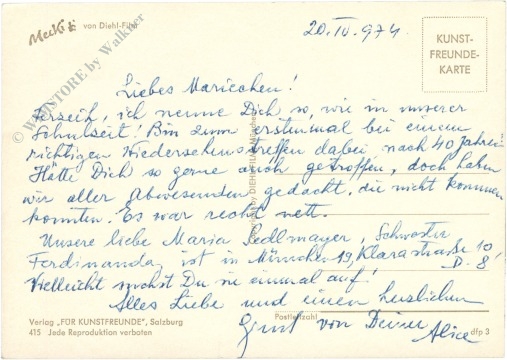 Mecki von Diehl-Film
20.IV.974
KUNST-
FREUNDE-
KARTE
© WEBSTORE by Walkner
Liebes Mariechen!
Verzeih, ich nenne Dich so, wie in unserer
Schulzeit! Bin zum erstenmal bei einem
richtigen Wiedersehenstreffen dabei nach 40 Jahren
Hätte Dich so gerne auch getroffen, doch haben
wir aller Abwesenden gedacht, die nicht kommen
konnten. Es war recht nett.
Unsere liebe Maria Sedlmayer, Schwester
Ferdinanda, ist in München 19, Klarastraße 10
D-8
Vielleicht suchst Du sie einmal auf!
Alles Liebe und einen herzlichen
Gruß von Deiner Alice
Verlag „FÜR KUNSTFREUNDE", Salzburg
415 Jede Reproduktion verboten
Postleitzahl
dfp 3